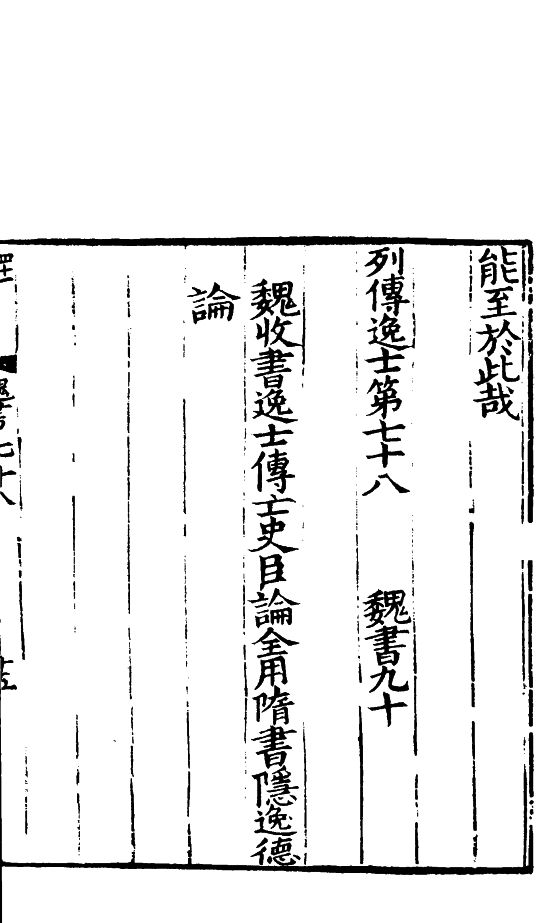 能至於此哉
列傳逸士第七十八 魏書九十
魏收書逸士傳亡史臣論全用隋書隱逸德
論